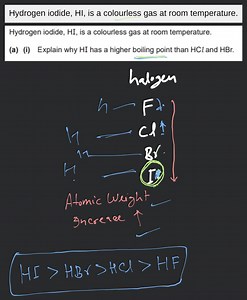 Hydrogen iodide, HI, is a colourless gas at room temperature.
Hydrogen iodide, HI, is a colourless gas at room temperature.
(a) (i) Explain why HI has a higher boiling point than HCl and HBr.
halogen
H — F
H — Cl ↑
H — Br
H — I
Atomic Weight
increase ↑
HI > HBr > HCl > HF